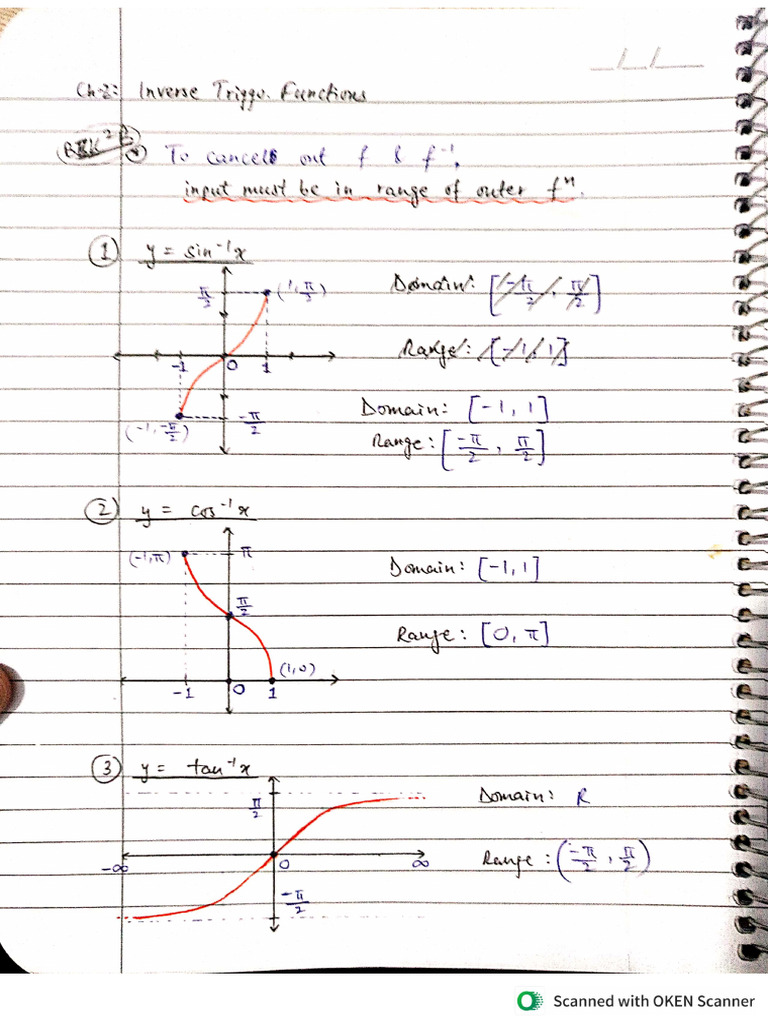 __/__/____
Ch-2: Inverse Triggo. Functions
To cancel out f & f⁻¹,
input must be in range of outer fⁿ.
① y = sin⁻¹x
π/2 (1, π/2) Domain: [-π/2, π/2]
-1 0 1 Range: [-1, 1]
Domain: [-1, 1]
(-1, -π/2) -π/2 Range: [-π/2, π/2]
② y = cos⁻¹x
(-1, π) π Domain: [-1, 1]
π/2 Range: [0, π]
(1, 0)
-1 0 1
③ y = tan⁻¹x
π/2 Domain: R
-∞ 0 ∞ Range: (-π/2, π/2)
-π/2
Scanned with OKEN Scanner